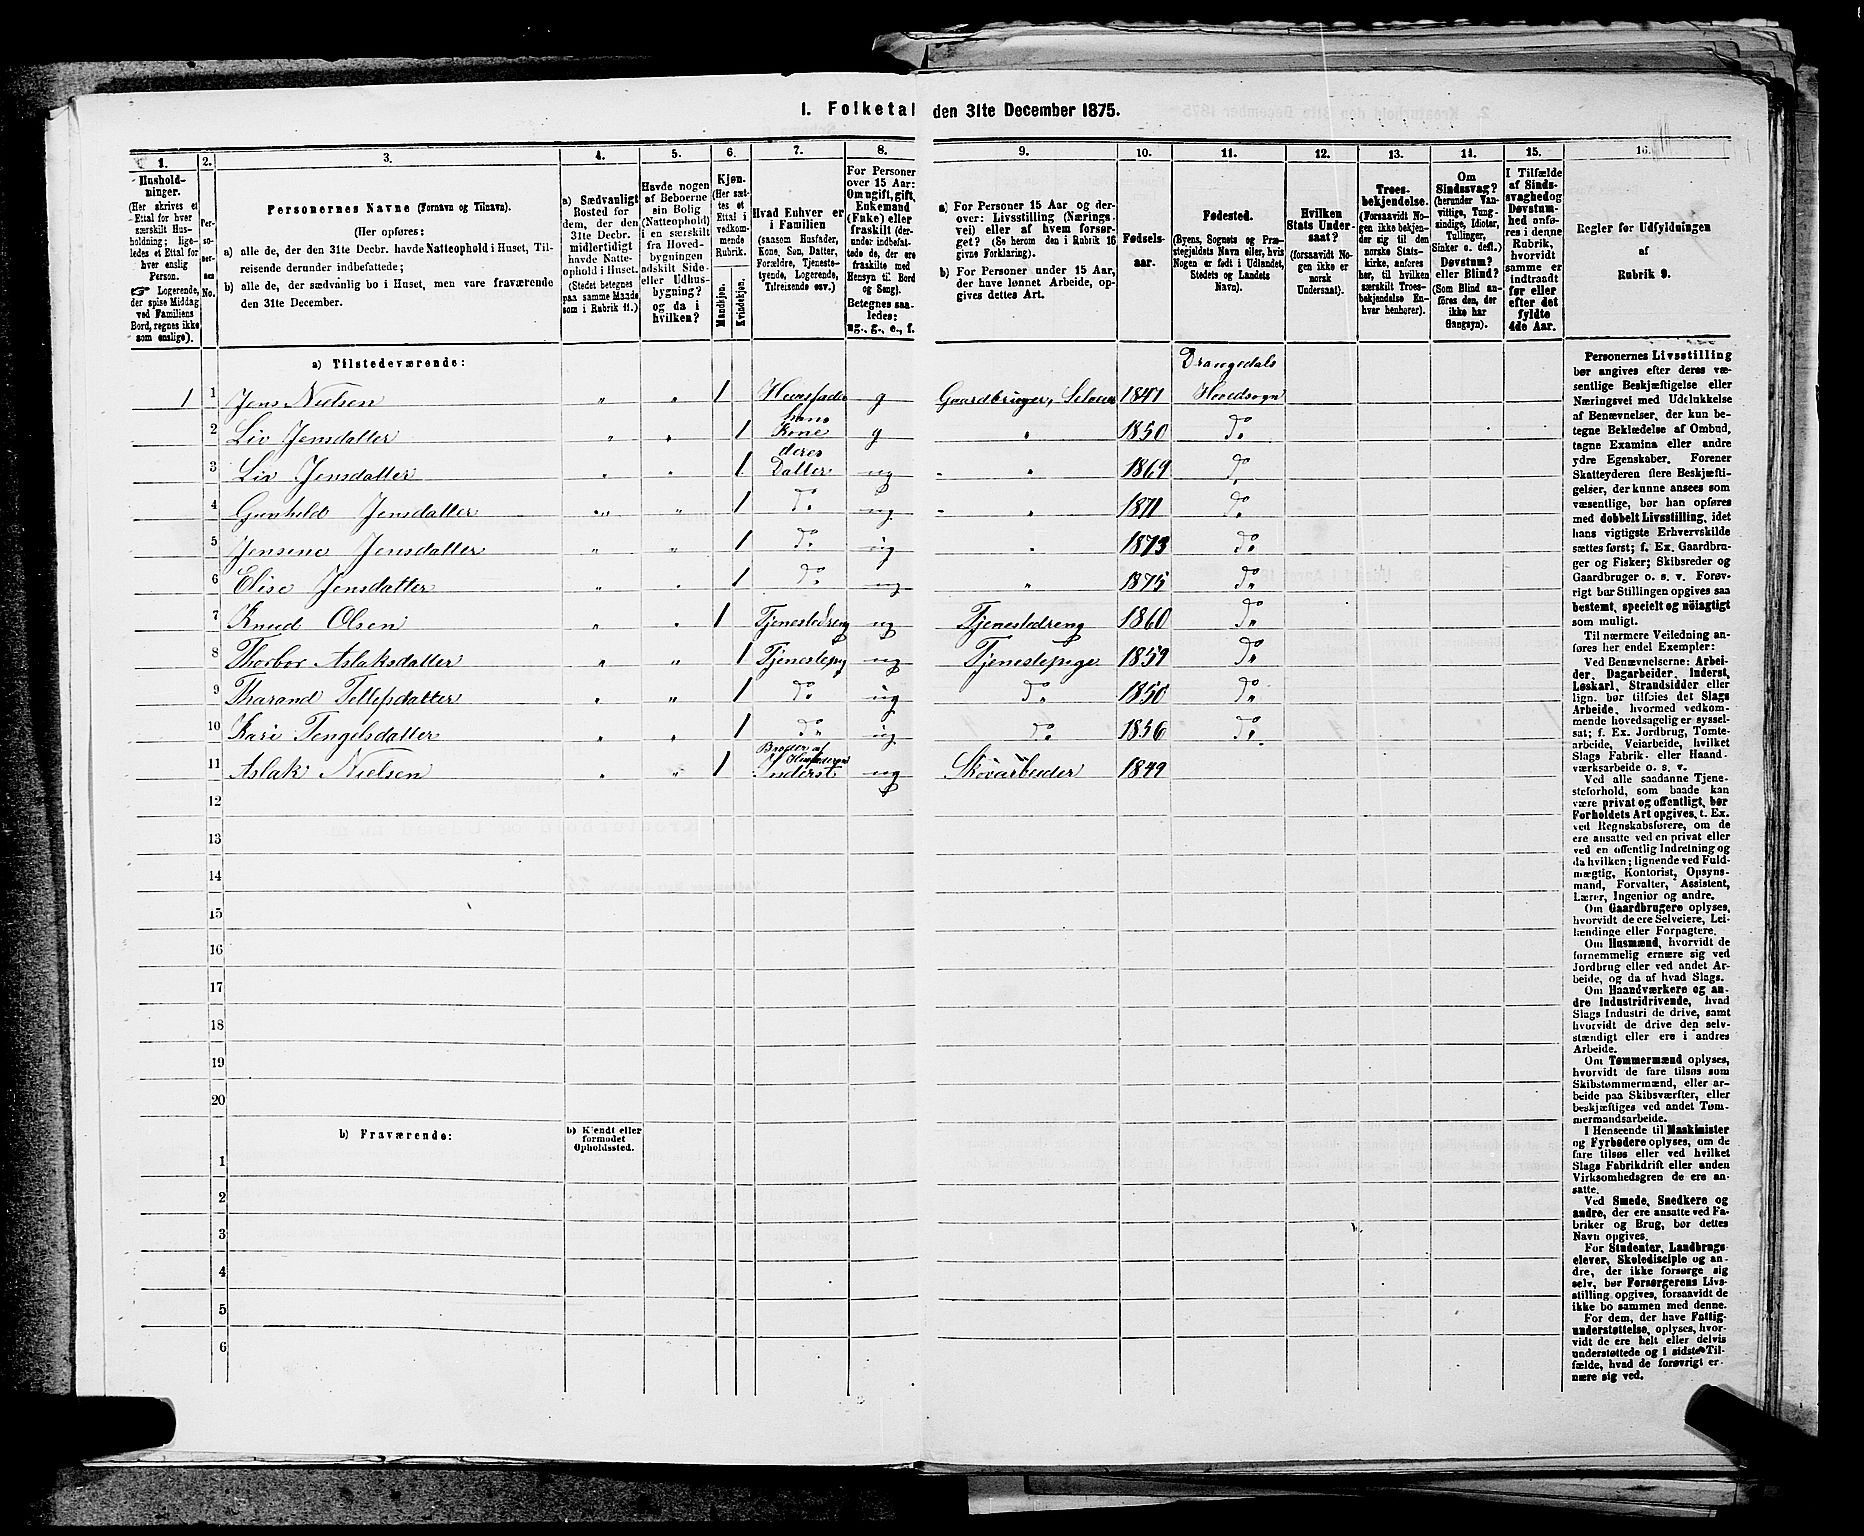 1. Folketal den 31te December 1875.
1. 2. 3. 4. 5. 6. 7. 8. 9. 10. 11. 12. 13. 14. 15. 16.
Hushold-
ninger.
(Her skrives et
Ettal for hver
særskilt Hus-
holdning; lige-
ledes et Ettal for
hver enslig
Person.
☞ Logerende,
der spise Middag
ved Familiens
Bord, regnes ikke
som enslige).
Per-
so-
ner-
nes
No.
Personernes Navne (Fornavn og Tilnavn).
(Her opføres:
a) alle de, der den 31te Decbr. havde Natteophold i Huset, Til-
reisende derunder indbefattede;
b) alle de, der sædvanlig bo i Huset, men vare fraværende
den 31te December.
a) Sædvanligt
Bosted for
dem, der den
31te Decbr.
midlertidigt
havde Natte-
ophold i Huset.
(Stedet betegnes
paa samme Maade
som i Rubrik 11.)
Havde nogen
af Beboerne
sin Bolig
(Natteophold)
i en særskilt
fra Hoved-
bygningen
adskilt Side-
eller Udhus-
bygning?
og da i
hvilken?
Kjøn.
(Her sæt-
tes et
Ettal i
vedkom-
mende
Rubrik.
Mandkjøn.
Kvindekjøn.
Hvad Enhver er
i Familien
(saasom Husfader,
Kone, Søn, Datter,
Forældre, Tjeneste-
tyende, Logerende,
Tilreisende osv.)
For Personer
over 15 Aar:
Om ugift, gift,
Enkemand
(Enke) eller
fraskilt (der-
under indbefat-
tede de, der ere
fraskilte med
Hensyn til Bord
og Seng).
Betegnes saa-
ledes:
ug., g., e., f.
a) For Personer 15 Aar og der-
over: Livsstilling (Nærings-
vei) eller af hvem forsør-
get? (Se herom den i Rubrik 16
givne Forklaring).
b) For Personer under 15 Aar,
der have lønnet Arbeide, op-
gives dettes Art.
Fødsels-
aar.
Fødested.
(Byens, Sognets og Præ-
stegjeldets Navn eller, hvis
Nogen er født i Udlandet,
Stedets og Landets
Navn).
Hvilken
Stats Under-
saat?
(forsaavidt No-
gen ikke er
norsk
Undersaat).
Troes-
bekjendelse.
(Forsaavidt No-
gen ikke bekjen-
der sig til den
norske Stats-
kirke, anføres
her, til hvilken
særskilt Troes-
bekjendelse En-
hver henhører).
Om
Sindssvag?
(herunder Van-
vittige, Tung-
sindige, Idioter,
Tullinger,
Sinker o. desl.)
Døvstum?
eller Blind?
(Som Blind an-
føres den, der
ikke har
Gangsyn).
I Tilfælde
af Sinds-
svaghed og
Døvstum-
hed anfø-
res i denne
Rubrik,
hvorvidt
samme er
indtraadt
før eller
efter det
fyldte
4de Aar.
Regler for Udfyldningen
af
Rubrik 9.
a) Tilstedeværende: Drangedals
1 1 Jens Nielsen „ „ 1 Huusfader g Gaardbruger, Selveier 1847 Hovedsogn
2 Liv Jensdatter „ „ 1 hans Kone g „ 1850 Do
3 Liv Jensdatter „ „ 1 deres Datter ug „ „ 1869 Do
4 Gunhild Jensdatter „ „ 1 Do ug „ „ 1871 Do
5 Jensine Jensdatter „ „ 1 Do ug „ 1873 Do
6 Elise Jensdatter „ „ 1 Do ug „ 1875 Do
7 Knud Olsen „ „ 1 Tjenestedreng ug Tjenestedreng 1860 Do
8 Thorbor Aslaksdatter „ „ 1 Tjenestepig ug Tjenestepige 1859 Do
9 Tharand Tellefsdatter „ „ 1 Do ug Do 1850 Do
10 Kari Tengelsdatter „ „ 1 Do ug Do 1856 Do
11 Aslak Nielsen „ „ 1 Broder af Inderst ug Skovarbeider 1849
12
13
14
15
16
17
18
19
20
b) Fraværende:
b) Kjendt eller
formodet
Opholdssted.
1
2
3
4
5
6
Personernes Livsstilling
bør angives efter deres væ-
sentlige Beskjæftigelse eller
Næringsvei med Udelukkelse
af Benævnelser, der kun be-
tegne Beklædelse af Ombud,
tagne Examina eller andre
ydre Egenskaber. Forener
Skatteyderen flere Beskjæfti-
gelser, der kunne ansees som
væsentlige, bør han opføres
med dobbelt Livsstilling, idet
hans vigtigste Erhvervskilde
sættes først; f. Ex. Gaardbru-
ger og Fisker; Skibsreder og
Gaardbruger o. s. v. Forøv-
rigt bør Stillingen opgives saa
bestemt, specielt og nöiagtigt
som muligt.
Til nærmere Veiledning an-
føres her endel Exempler:
Ved Benævnelserne: Arbei-
der, Dagarbeider, Inderst,
Løskarl, Strandsidder eller
lign. bør tilføies det Slags
Arbeide, hvormed vedkom-
mende hovedsagelig er syssel-
sat; f. Ex. Jordbrug, Tomte-
arbeide, Veiarbeide, hvilket
Slags Fabrik- eller Haand-
værksarbeide o. s. v.
Ved alle saadanne Tjene-
steforhold, som baade kan
være privat og offentligt, bør
Forholdets Art opgives, t. Ex.
ved Regnskabsførere, om de
ere ansatte ved en privat eller
ved en offentlig Indretning og
da hvilken; lignende ved Fuld-
mægtig, Kontorist, Opsyns-
mand, Forvalter, Assistent,
Lærer, Ingeniør og andre.
Om Gaardbrugere oplyses,
hvorvidt de ere Selveiere, Lei-
lændinge eller Forpagtere.
Om Husmænd, hvorvidt de
fornemmelig ernære sig ved
Jordbrug eller ved andet Ar-
beide, og da af hvad Slags.
Om Haandværkere og an-
dre Industridrivende, hvad
Slags Industri de drive, samt
hvorvidt de drive den selv-
stændigt eller ere i andres
Arbeide.
Om Tømmermænd oplyses,
hvorvidt de fare tilsøs som
Skibstømmermænd, eller ar-
beide paa Skibsværfter, eller
beskjæftiges ved andet Tøm-
mermandsarbeide.
I Henseende til Maskinister
og Fyrbødere oplyses, om de
fare tilsøs eller ved hvilket
Slags Fabrikdrift eller anden
Virksomhedsgren de ere an-
satte.
Ved Smede, Snedkere og
andre, der ere ansatte ved Fa-
briker og Brug, bør dettes
Navn opgives.
For Studenter, Landbrugs-
elever, Skoledisciple og an-
dre, der ikke forsørge sig
selv, bør Forsørgerens Livs-
stilling opgives, forsaavidt de
ikke bo sammen med denne.
For dem, der have Fattig-
understøttelse, oplyses, hvor-
vidt de ere helt eller delvis
understøttede og i sidste Til-
fælde, hvad de forøvrigt er-
nære sig ved.